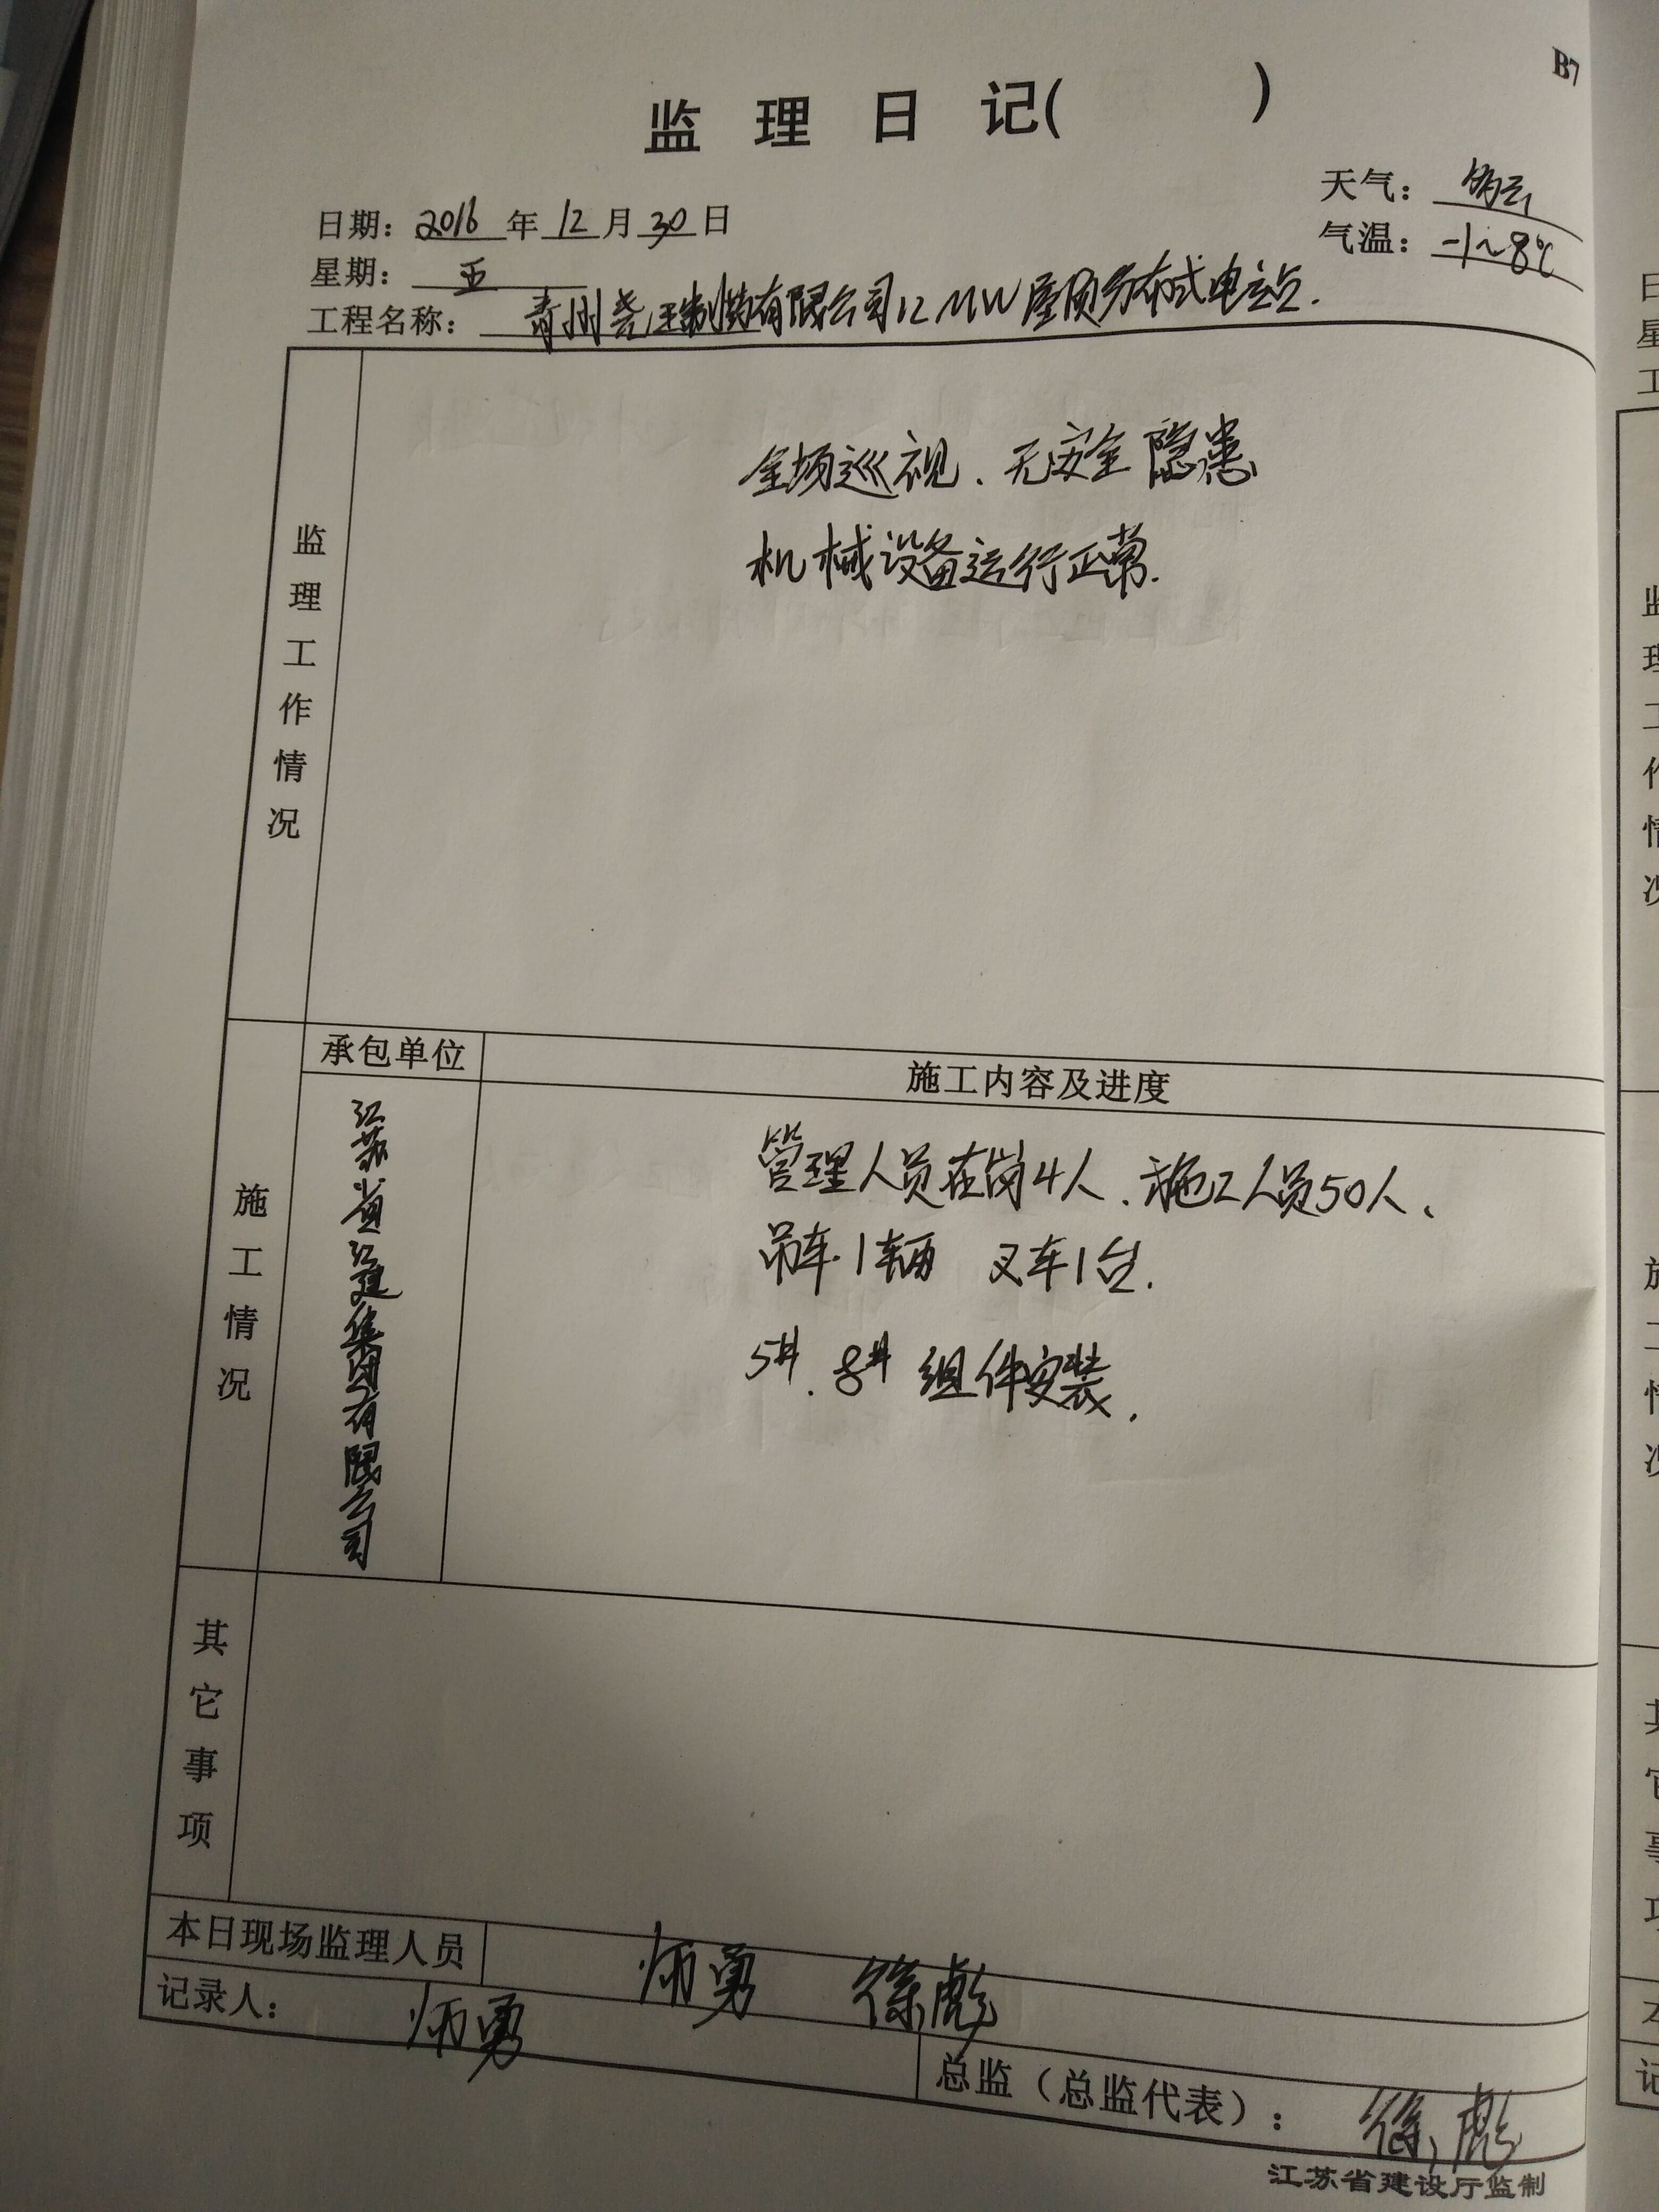 B7
监理日记( )
天气：多云
日期：2016年12月30日
气温：-1~8℃
星期：五
工程名称：青州尧王制药有限公司12MW屋顶分布式电站.
监理工作情况
全场巡视、无安全隐患
机械设备运行正常.
施工情况
承包单位
施工内容及进度
江苏省江建集团有限公司
管理人员在岗4人、施工人员50人、
吊车1辆 叉车1台.
5#、8# 组件安装.
其它事项
本日现场监理人员
勇 徐彪
记录人： 勇
总监（总监代表）： 徐彪
江苏省建设厅监制